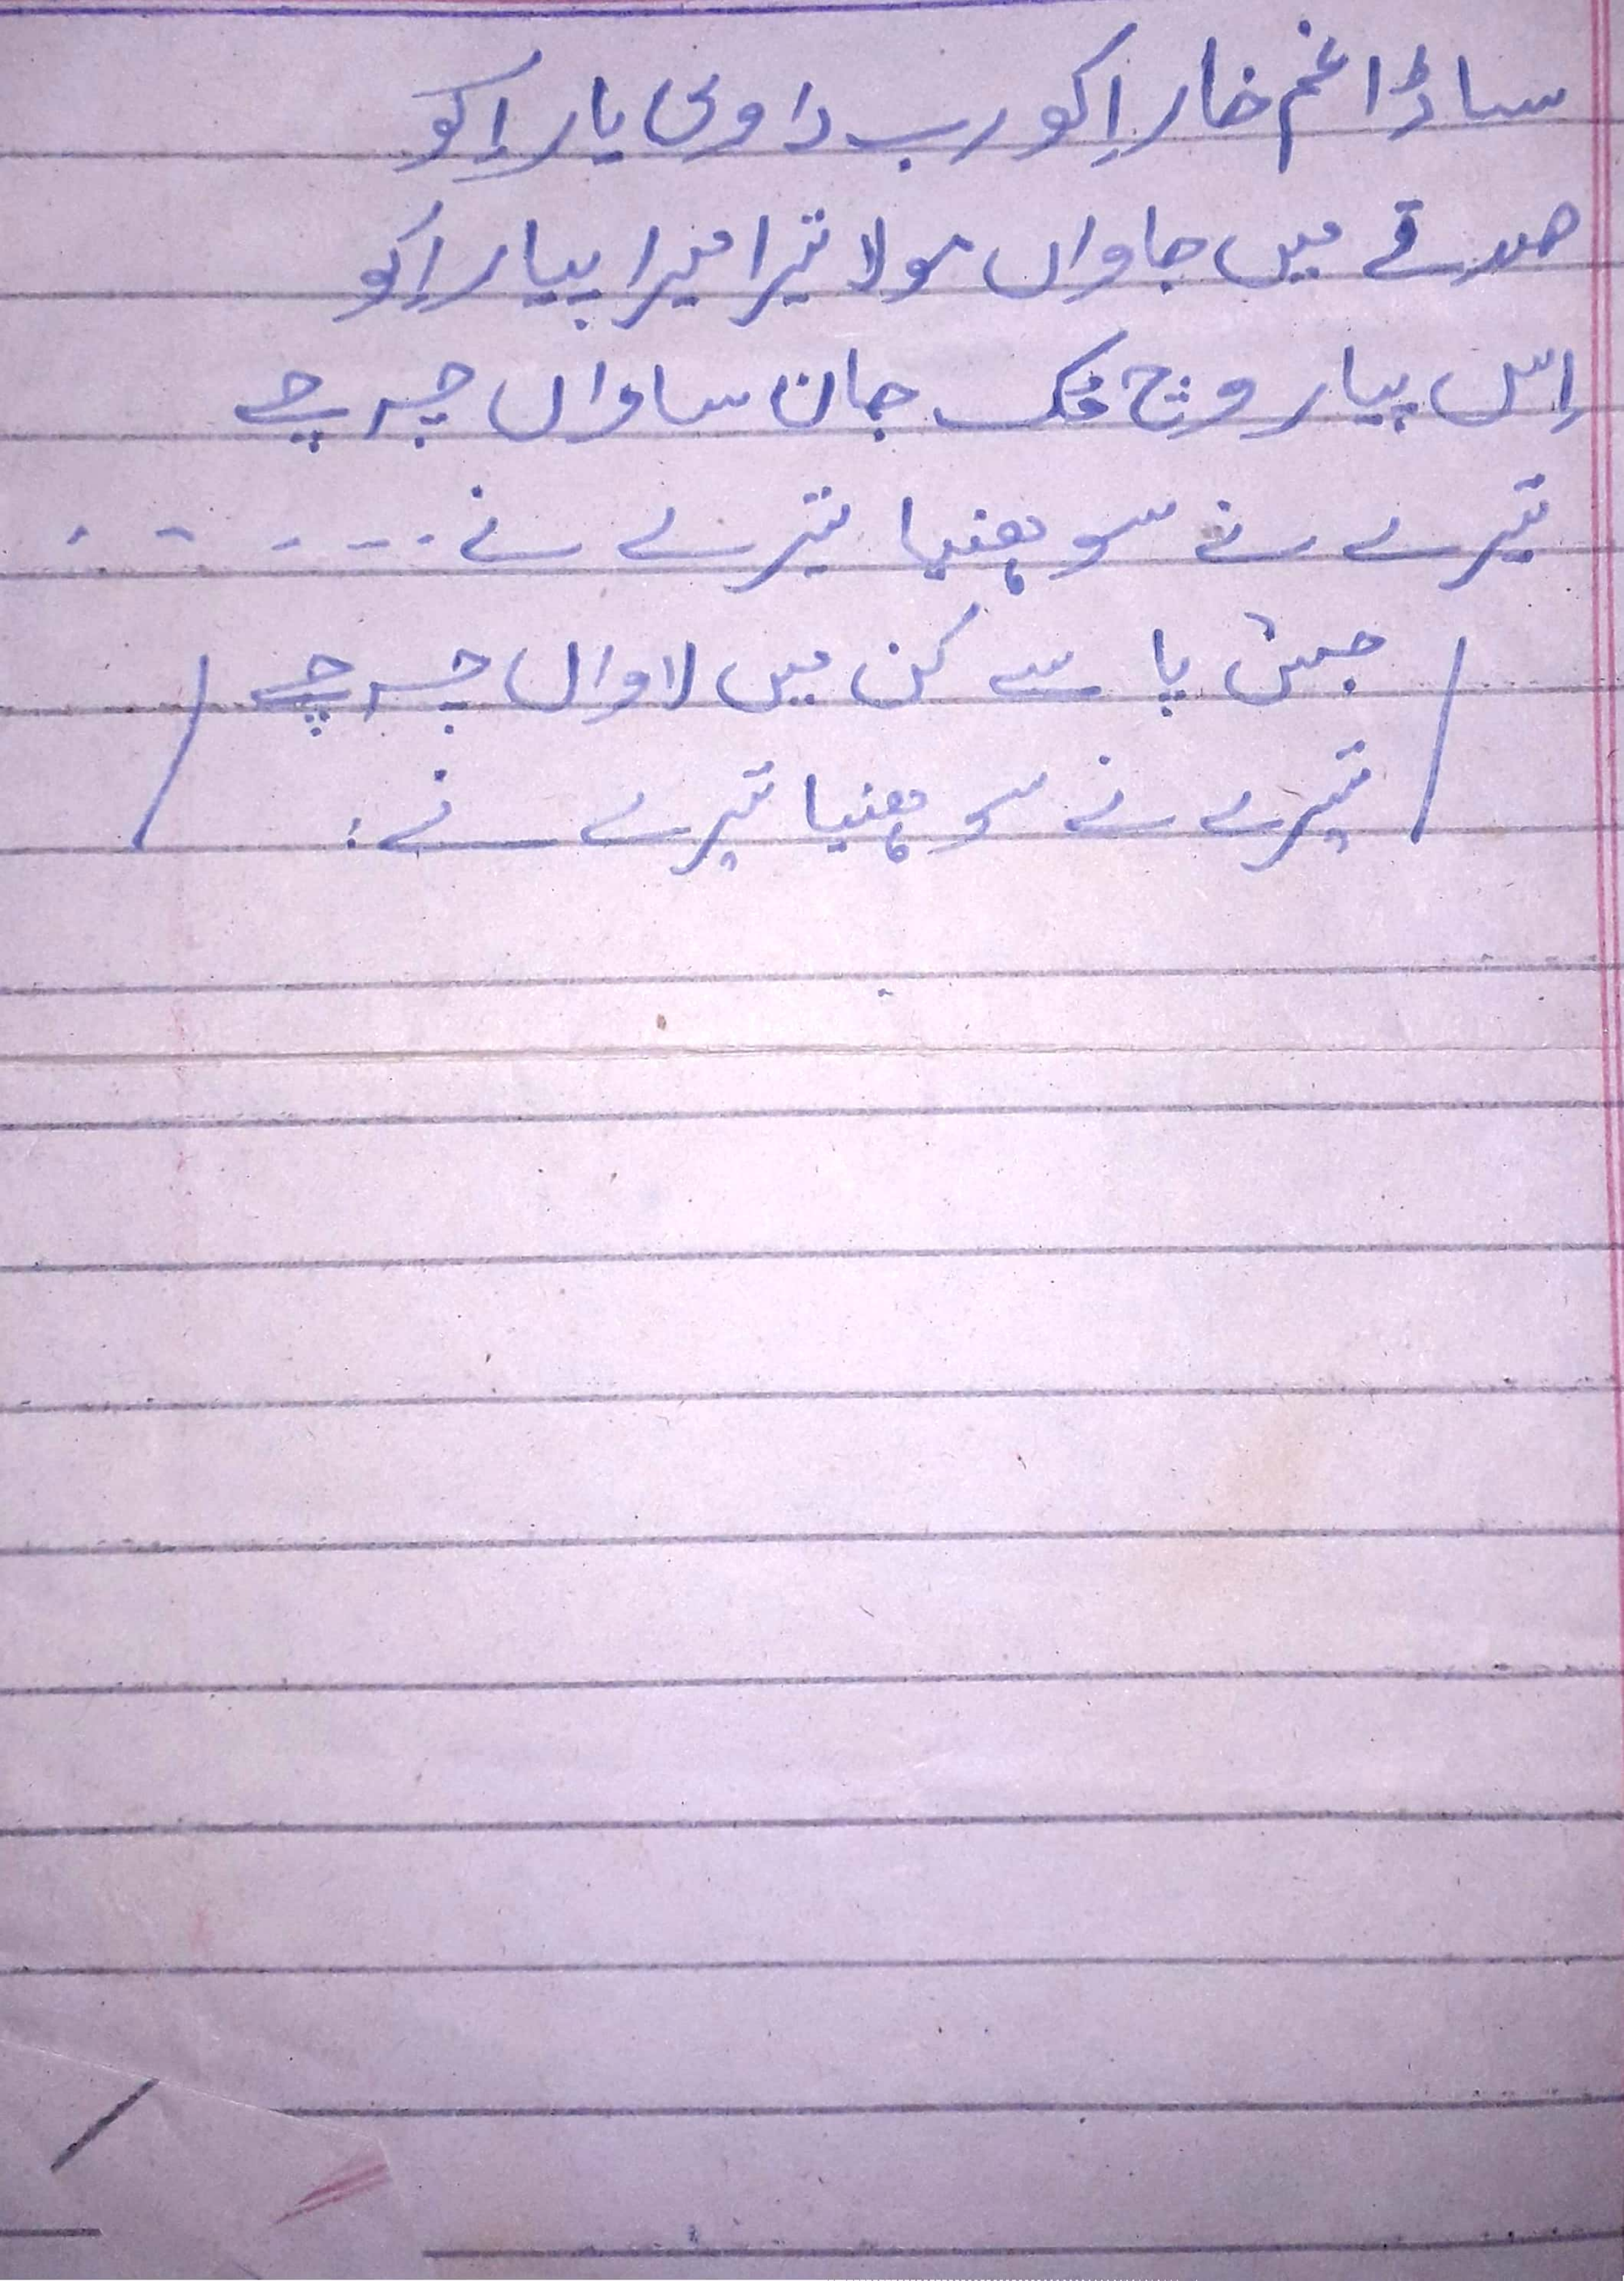 ساڈا غم خار اِکو رب دا وی یار اِکو
صدقے میں جاواں مولا تیرا میرا پیار اِکو
اِس پیار وچ مک جان ساواں چرچے
تیرے نے سوہنیا تیرے نے ------
(جس پا سے کن میں لاواں چرچے
تیرے نے سوہنیا تیرے نے:)